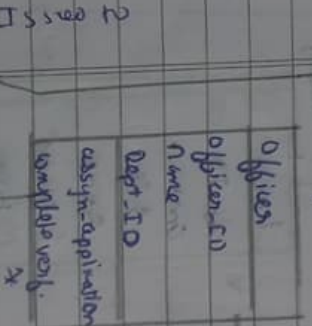 Issued to
Officer
Officer-ID
Name
Dept-ID
assign-application
complete verf.